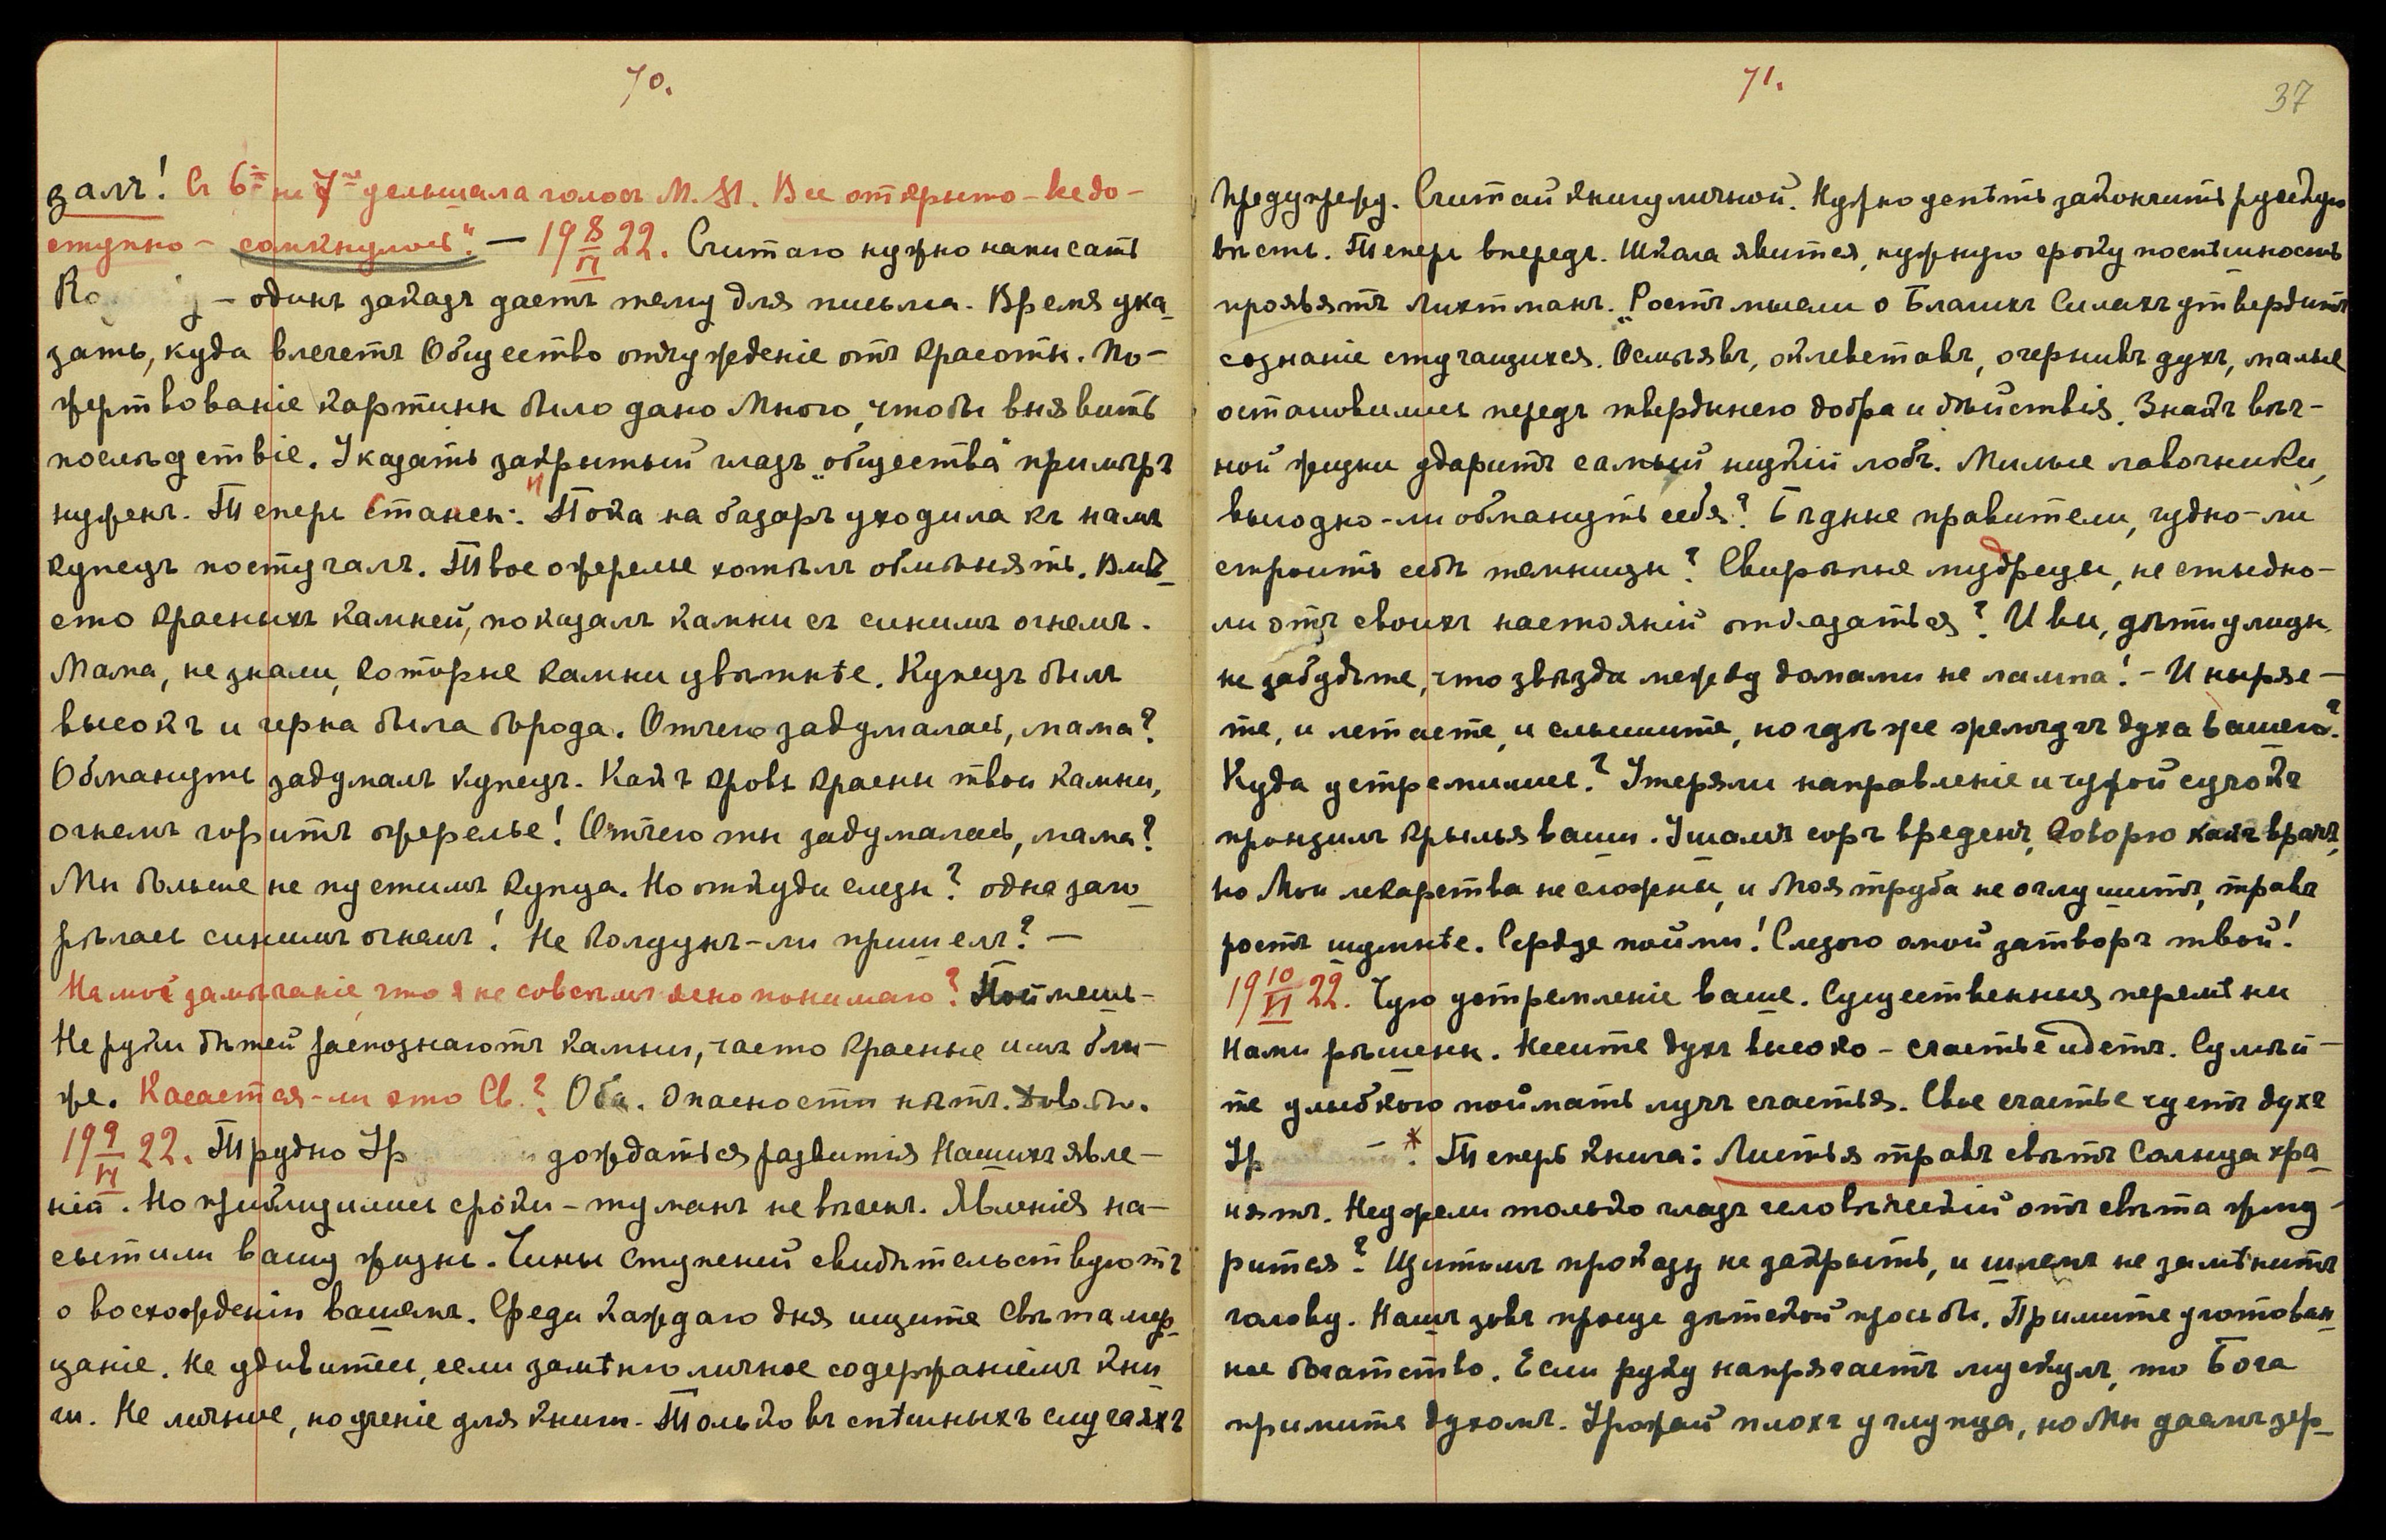 70.
залъ! Съ 6го на 7ое услышала голосъ М. М. Все открыто – недо-
ступно – сомкнулось". — 19 8/VI 22. Считаю нужно написать
– одинъ заказъ даетъ тему для письма. Время ука-
зать, куда влечетъ Общество отчужденіе отъ красоты. По-
жертвованіе картины было дано Мною, чтобы выявить
послѣдствіе. Указать закрытый глазъ „общества" примѣръ
нуженъ. Теперь Станси: Пока на базаръ уходила къ намъ
купецъ постучалъ. Твое ожерелье хотѣлъ обмѣнять. Вмѣ-
сто красныхъ камней, показалъ камни съ синимъ огнемъ.
Мама, не знали, которые камни цвѣтнѣе. Купецъ былъ
высокъ и черна была борода. Отчего задумалась, мама?
Обмануть задумалъ купецъ. Какъ кровь красны твои камни,
огнемъ горитъ ожерелье! Отчего ты задумалась, мама?
Мы больше не пустимъ купца. Но откуда слезы? одна заго-
рѣлась синимъ огнемъ! Не колдунъ-ли пришелъ? —
На моё замѣчаніе, что я не совсѣмъ ясно понимаю? Поймешь-
Не руки дѣтей распознаютъ камни, часто красные имъ бли-
же. Касается-ли это Св.? Оба. Опасности нѣтъ. Довольно.
19 9/VI 22. Трудно Ур дождаться развитія Нашихъ явле-
ній. Но приблизились сроки – туманъ не вѣченъ. Явленія на-
сытили вашу жизнь. Чины ступеней свидѣтельствуютъ
о восхожденіи вашемъ. Среди каждаго дня ищите Свѣта мер-
цаніе. Не удивитесь, если замѣтно личное содержаніемъ кни-
ги. Не личные, но ученіе для книги. Только въ спѣшныхъ случаяхъ
71.
37
предупрежд. Считай книгу личной. Нужно успѣть закончить русскую
вѣсть. Теперь впередъ. Школа явится, нужную сроку поспѣшность
проявятъ Лихтманъ. „Ростъ мысли о Благихъ Силахъ утвердитъ
сознаніе стучащихся. Осмѣявъ, оклеветавъ, очернивъ духъ, малые
остановились передъ твердынею добра и дѣйствія. Знакъ вѣч-
ной жизни ударитъ самый низкій лобъ. Милые лавочники,
выгодно-ли обмануть себя? Бѣдные правители, чудно-ли
строить себѣ темницы? Свирѣпые мудрецы, не стыдно-
ли отъ своихъ настояній отказаться? И вы, дѣти улицы,
не забудьте, что звѣзда между домами не лампа! – И ныряе-
те, и летаете, и слышите, но гдѣ же жемчугъ духа вашего?
Куда устремились? Утеряли направленіе и чужой сучокъ
пронзилъ крылья ваши. Ушамъ соръ вреденъ, говорю какъ врачъ,
но Мои лекарства не сложны, и Моя труба не оглушитъ, травъ
ростъ шумнѣе. Сердце пойми! Слезою омой затворъ твой!
19 10/VI 22. Чую устремленіе ваше. Существенныя перемѣны
Нами рѣшены. Несите духъ высоко – счастье идетъ. Сумѣй-
те улыбкою поймать лучъ счастья. Свое счастье чуетъ духъ
Ур * Теперь книга: Листья травъ свѣтъ Солнца хра-
нятъ. Неужели только глазъ человѣческій отъ свѣта жму-
рится? Щитомъ проказу не закрыть, и шлемъ не замѣнитъ
голову. Нашъ зовъ проще дѣтской просьбы. Примите уготован-
ное богатство. Если руку напрягаетъ мускулъ, то Бога
примите духомъ. Урожай плохъ у глупца, но Мы даемъ зер-